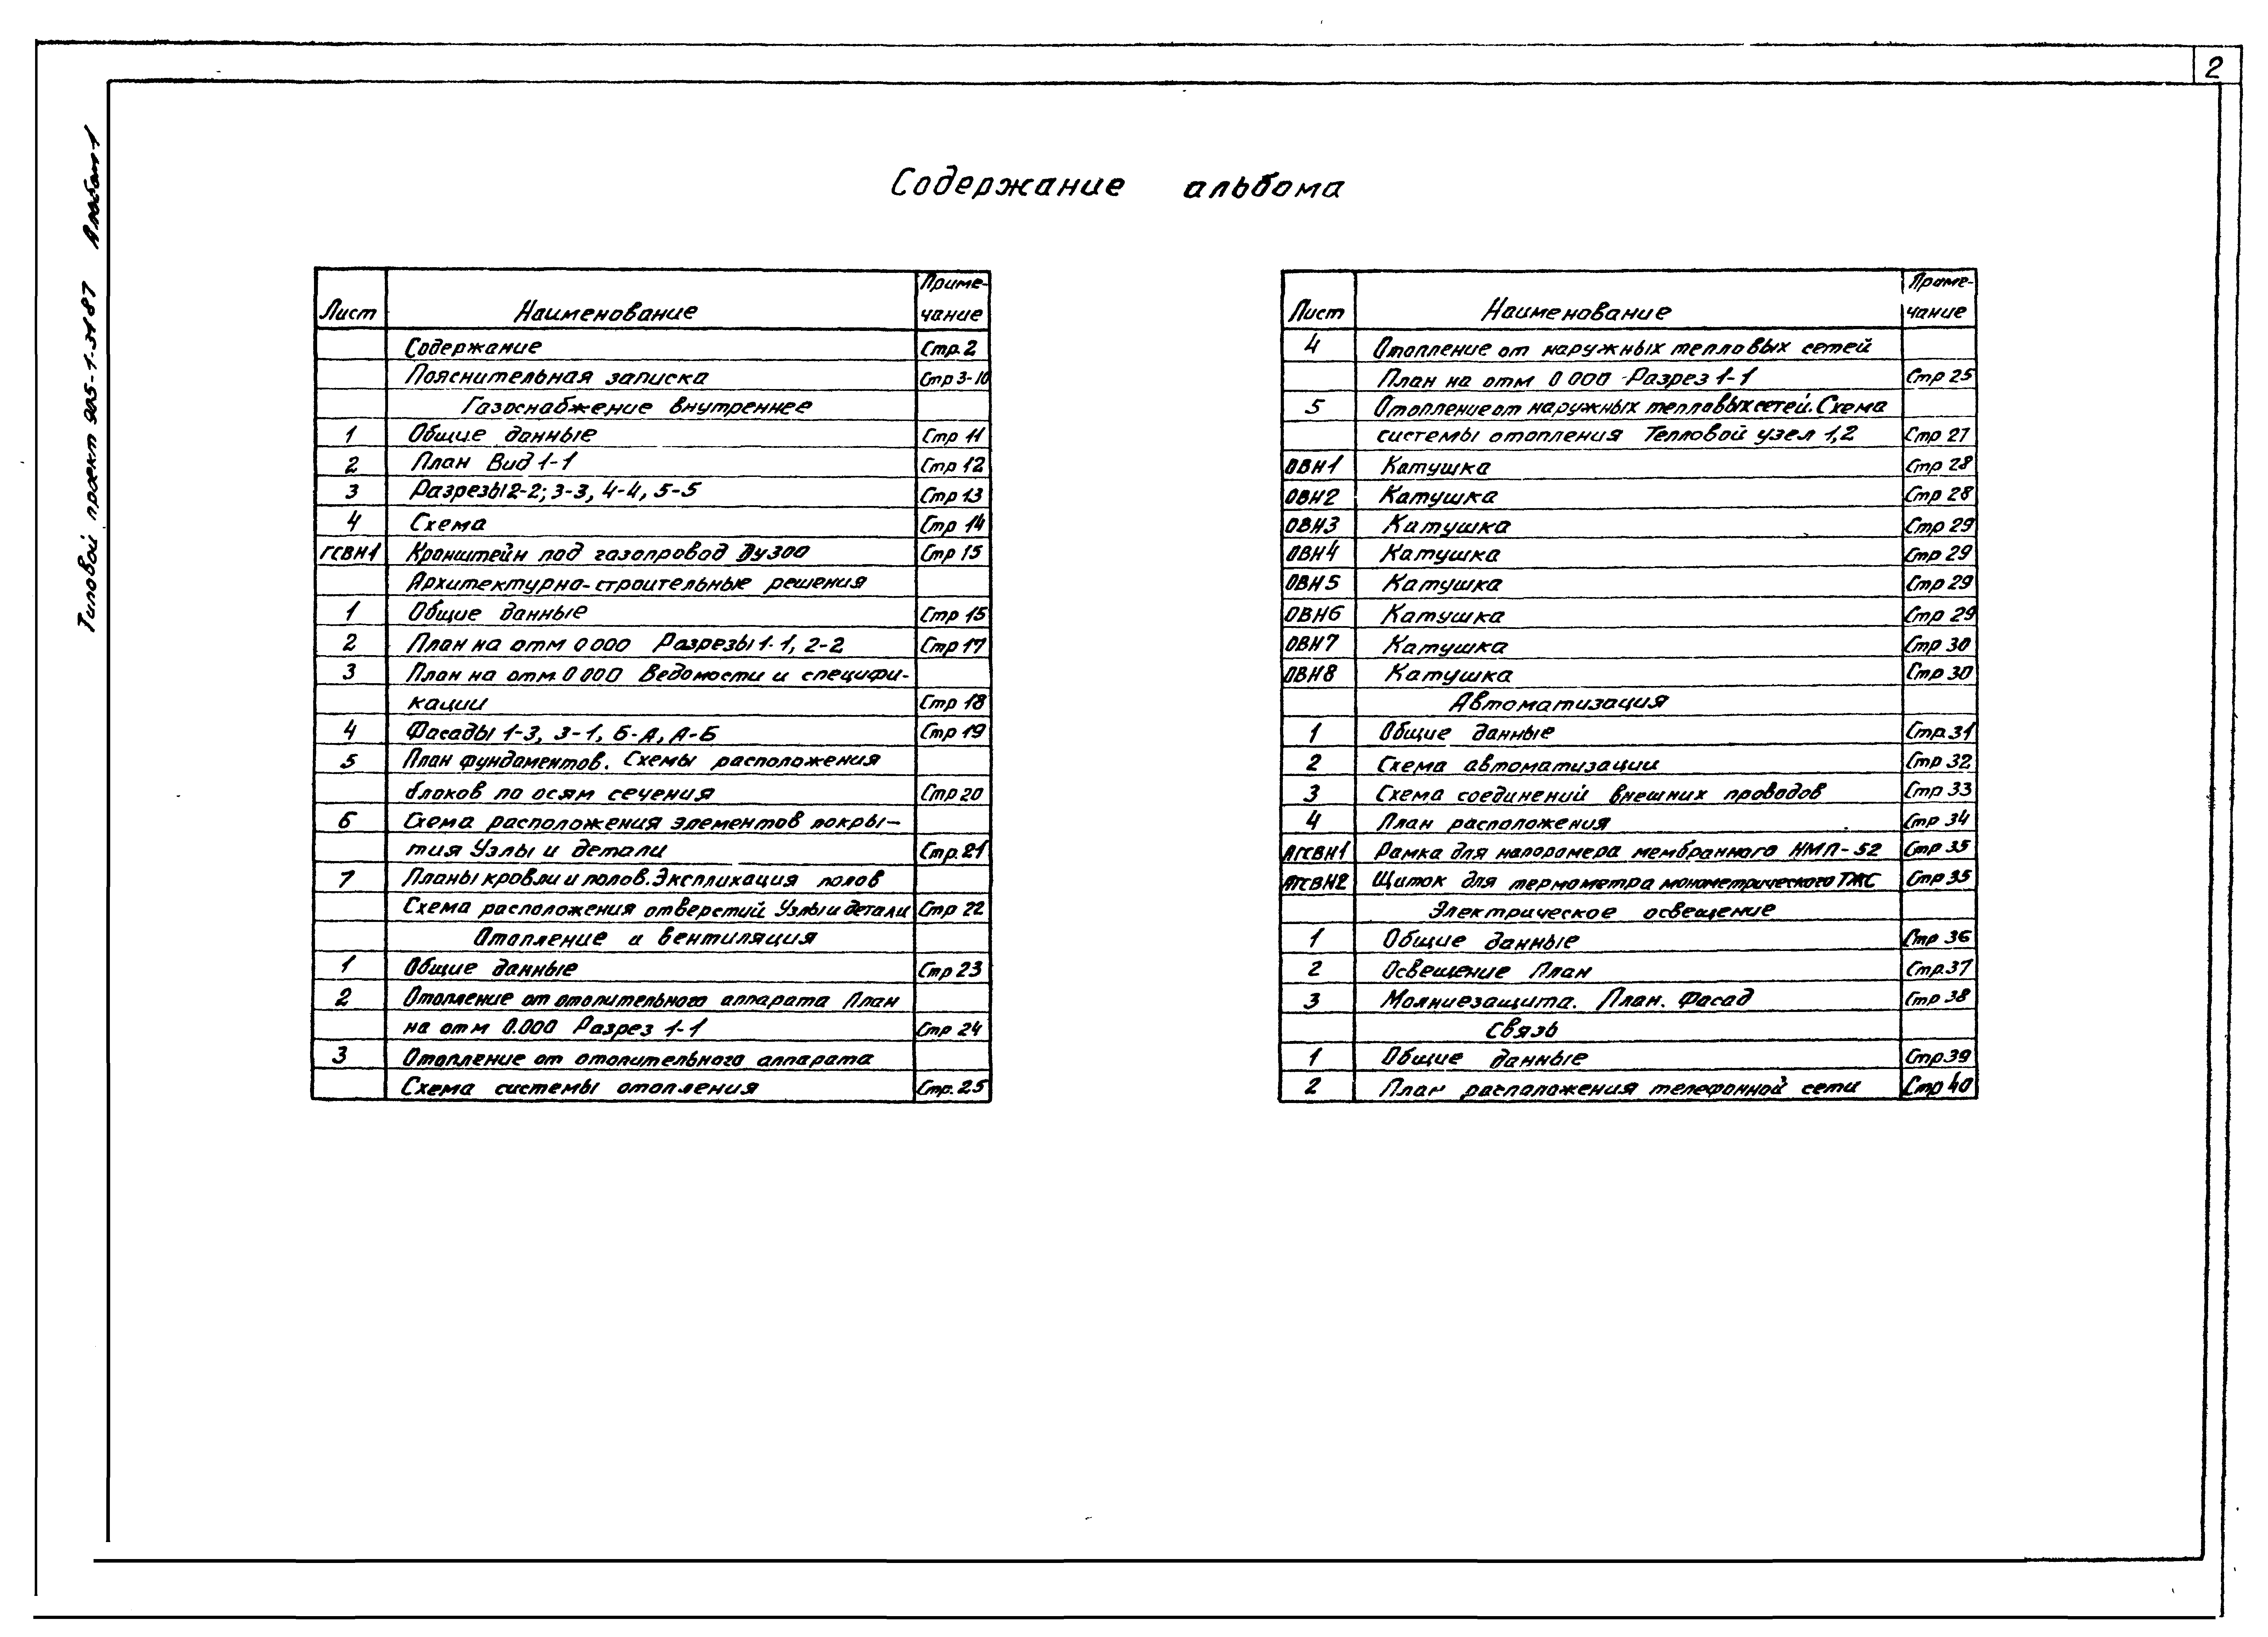 2
Типовой проект 905-1-34.87 Альбом 1
Содержание альбома
Лист Наименование Приме-
чание
Содержание Стр. 2
Пояснительная записка Стр 3-10
Газоснабжение внутреннее
1 Общие данные Стр 11
2 План Вид 1-1 Стр 12
3 Разрезы 2-2; 3-3, 4-4, 5-5 Стр 13
4 Схема Стр 14
ГСВН1 Кронштейн под газопровод Ду300 Стр 15
Архитектурно-строительные решения
1 Общие данные Стр 15
2 План на отм 0 000 Разрезы 1-1, 2-2 Стр 17
3 План на отм. 0 000 Ведомости и специфи-
кации Стр 18
4 Фасады 1-3, 3-1, Б-А, А-Б Стр 19
5 План фундаментов. Схемы расположения
блоков по осям сечения Стр 20
6 Схема расположения элементов покры-
тия Узлы и детали Стр. 21
7 Планы кровли и полов. Экспликация полов
Схема расположения отверстий Узлы и детали Стр 22
Отопление и вентиляция
1 Общие данные Стр 23
2 Отопление от отопительного аппарата План
на отм 0.000 Разрез 1-1 Стр 24
3 Отопление от отопительного аппарата
Схема системы отопления Стр. 25
Лист Наименование Приме-
чание
4 Отопление от наружных тепловых сетей
План на отм 0 000 Разрез 1-1 Стр 25
5 Отопление от наружных тепловых сетей. Схема
системы отопления Тепловой узел 1,2 Стр 27
ОВН1 Катушка Стр 28
ОВН2 Катушка Стр 28
ОВН3 Катушка Стр 29
ОВН4 Катушка Стр 29
ОВН5 Катушка Стр 29
ОВН6 Катушка Стр 29
ОВН7 Катушка Стр 30
ОВН8 Катушка Стр 30
Автоматизация
1 Общие данные Стр. 31
2 Схема автоматизации Стр 32
3 Схема соединений внешних проводов Стр 33
4 План расположения Стр 34
АГСВН1 Рамка для напоромера мембранного НМП-52 Стр 35
АГСВН2 Щиток для термометра манометрического ТЖС Стр 35
Электрическое освещение
1 Общие данные Стр 36
2 Освещение План Стр. 37
3 Молниезащита. План. Фасад Стр 38
Связь
1 Общие данные Стр 39
2 План расположения телефонной сети Стр 40